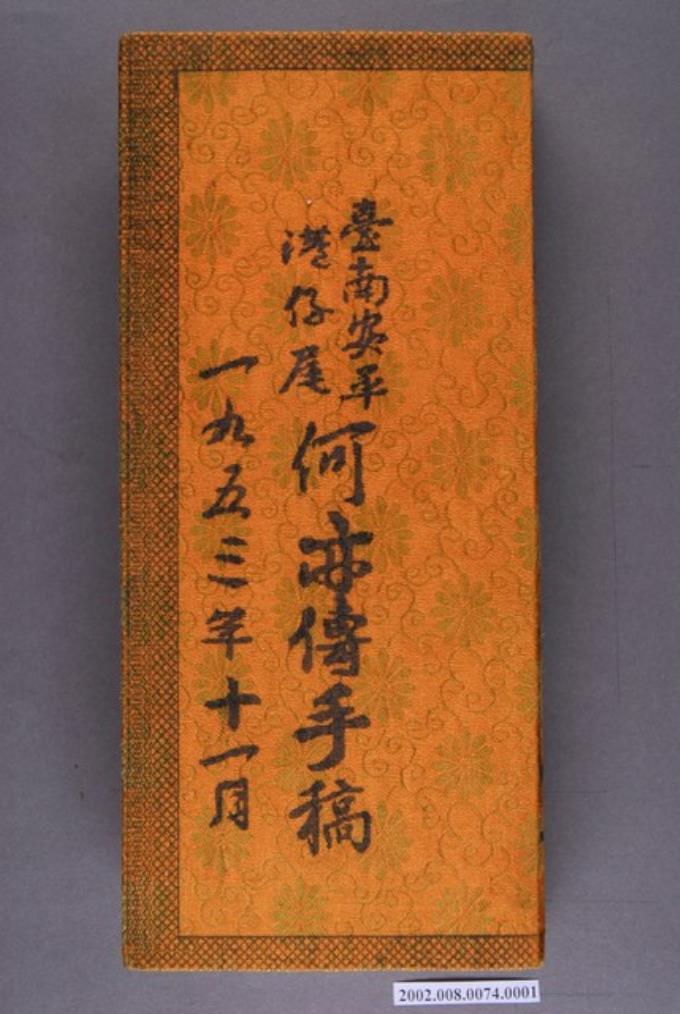 臺南安平
港仔尾
何亦傳手稿
一九五三年十一月
2002.008.0074.0001